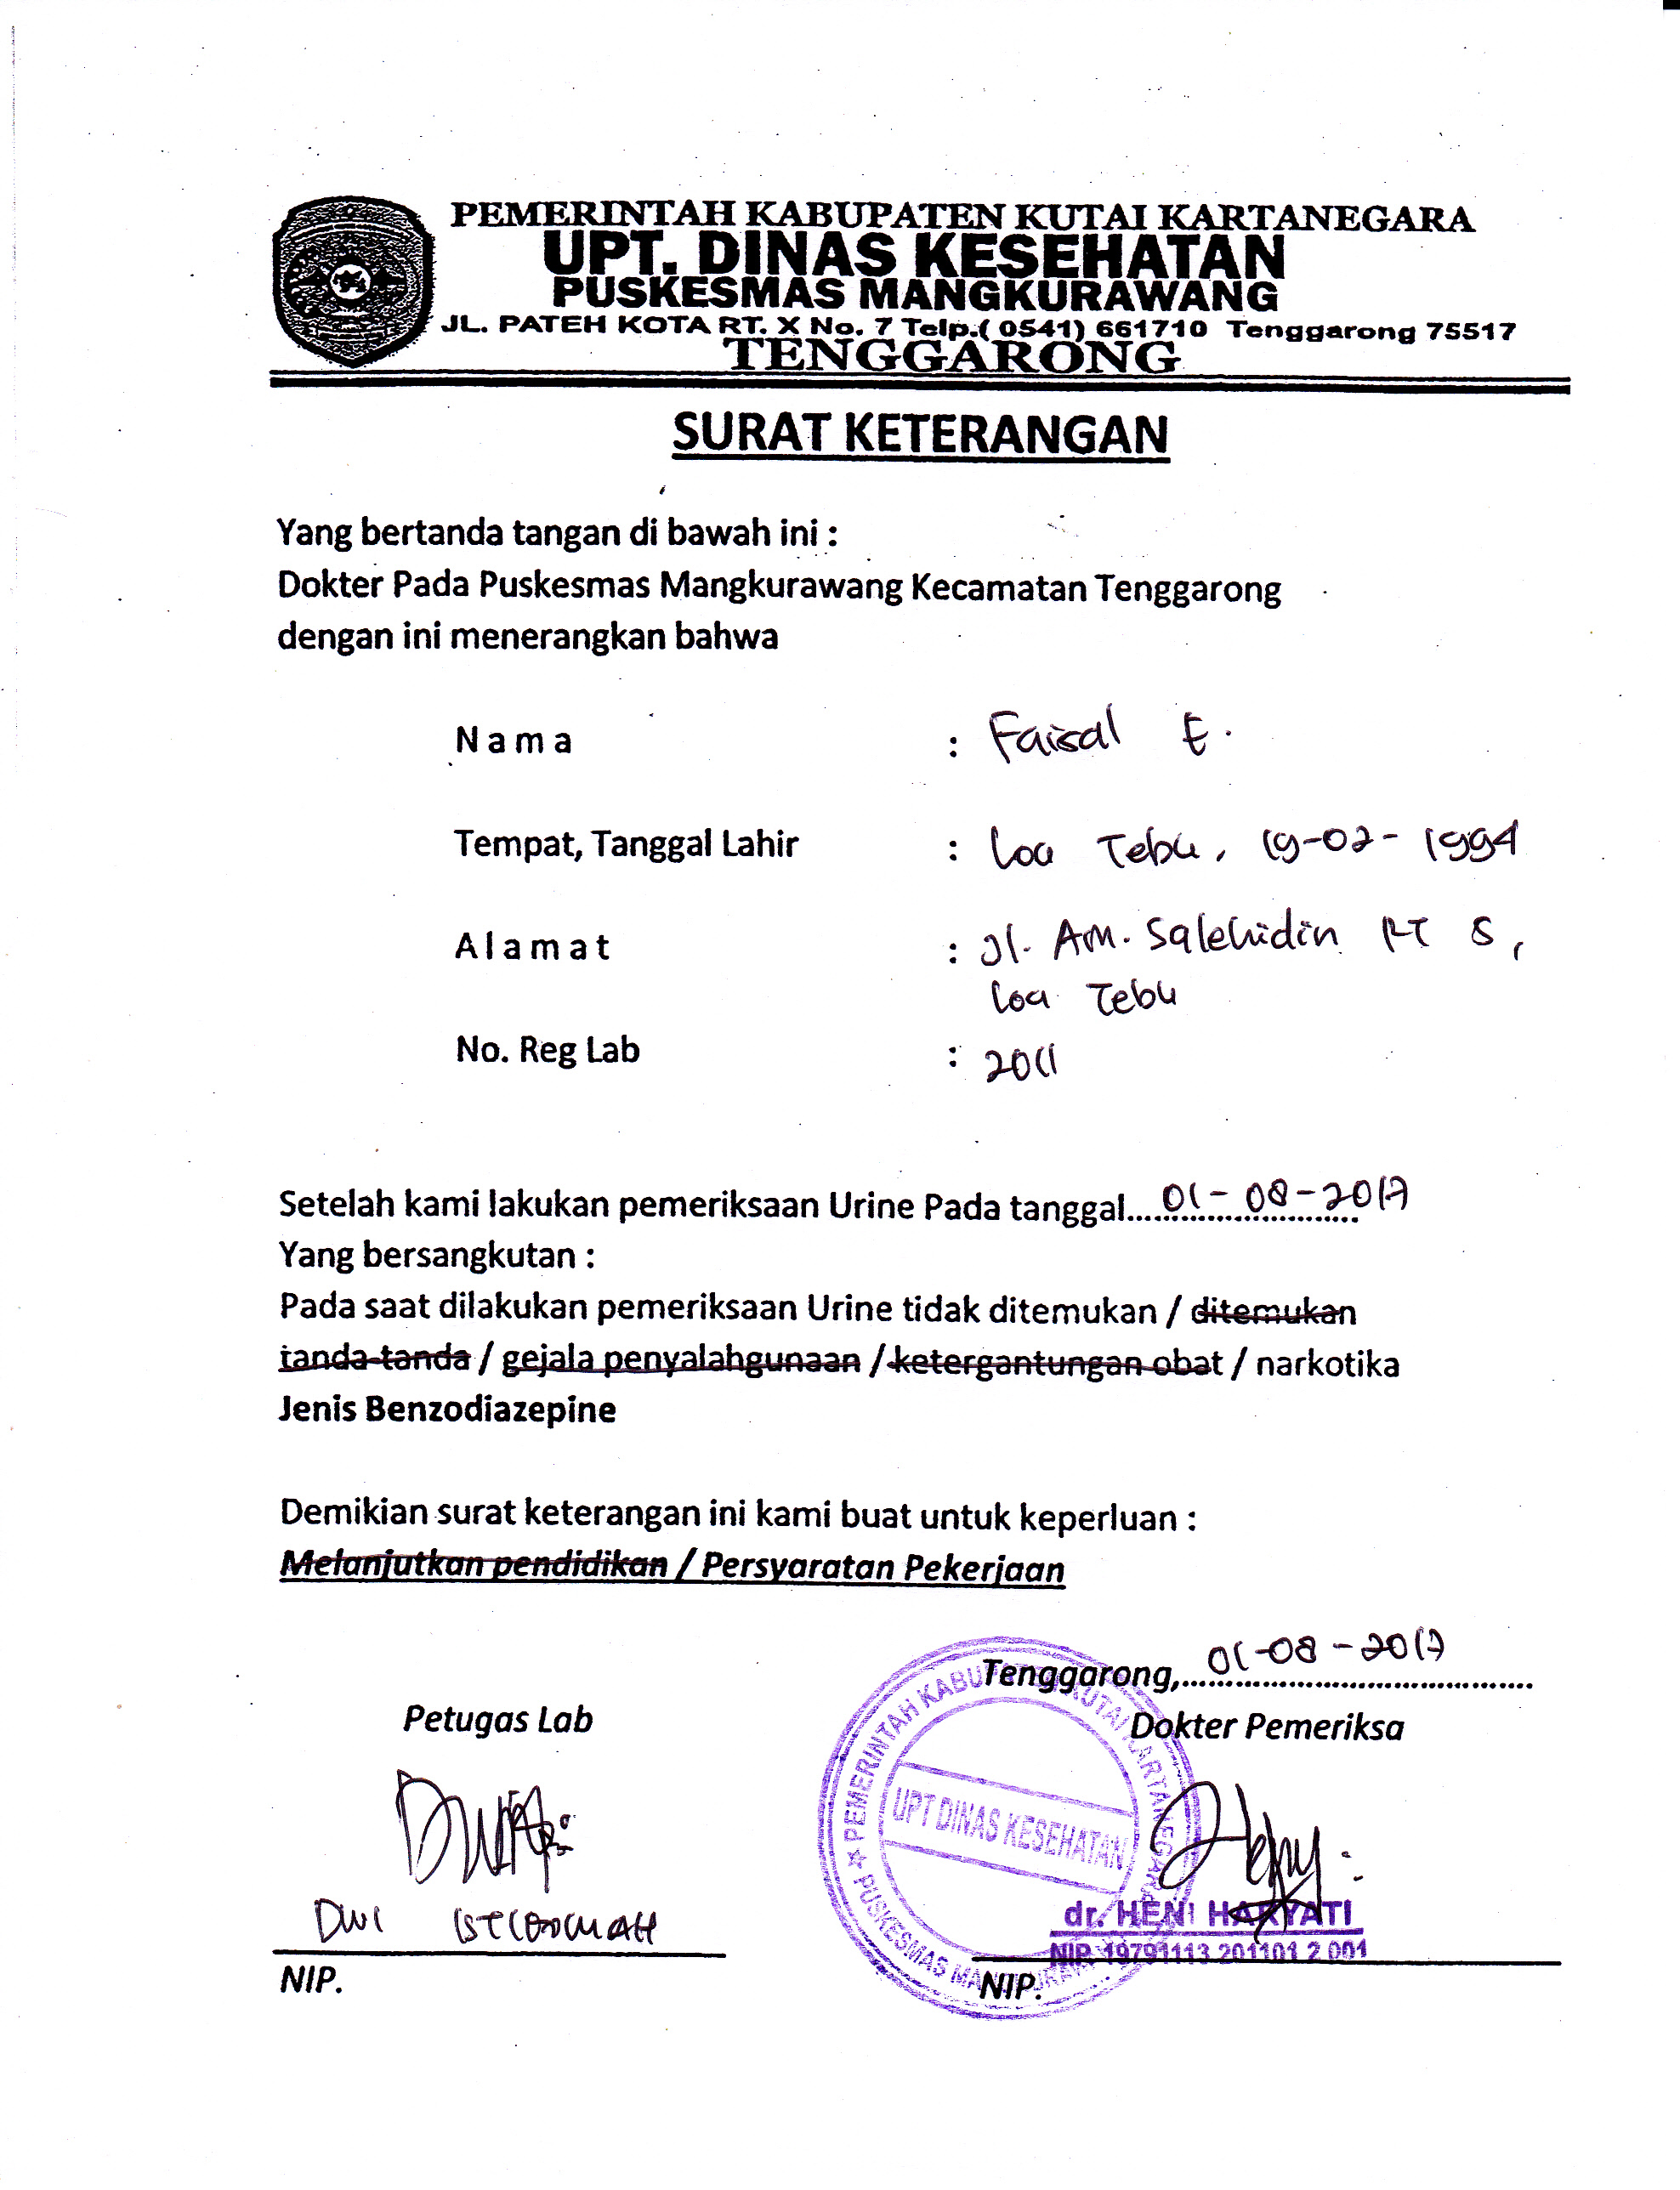 PEMERINTAH KABUPATEN KUTAI KARTANEGARA
UPT. DINAS KESEHATAN
PUSKESMAS MANGKURAWANG
JL. PATEH KOTA RT. X No. 7 Telp.( 0541) 661710 Tenggarong 75517
TENGGARONG
SURAT KETERANGAN
Yang bertanda tangan di bawah ini :
Dokter Pada Puskesmas Mangkurawang Kecamatan Tenggarong
dengan ini menerangkan bahwa
N a m a : Faisal E.
Tempat, Tanggal Lahir : Loa Tebu, 19-02-1994
A l a m a t : Jl. AM. Salehidin RT 8,
Loa Tebu
No. Reg Lab : 2011
Setelah kami lakukan pemeriksaan Urine Pada tanggal....01-08-2017
Yang bersangkutan :
Pada saat dilakukan pemeriksaan Urine tidak ditemukan / ditemukan
tanda-tanda / gejala penyalahgunaan / ketergantungan obat / narkotika
Jenis Benzodiazepine
Demikian surat keterangan ini kami buat untuk keperluan :
Melanjutkan pendidikan / Persyaratan Pekerjaan
Tenggarong,....01-08-2017
Petugas Lab
Dokter Pemeriksa
PEMERINTAH KABUPATEN KUTAI KARTANEGARA
UPT DINAS KESEHATAN
PUSKESMAS MANGKURAWANG
Dwi
dr. HENI HARYATI
NIP. 19791113 201101 2 001
NIP.
NIP.